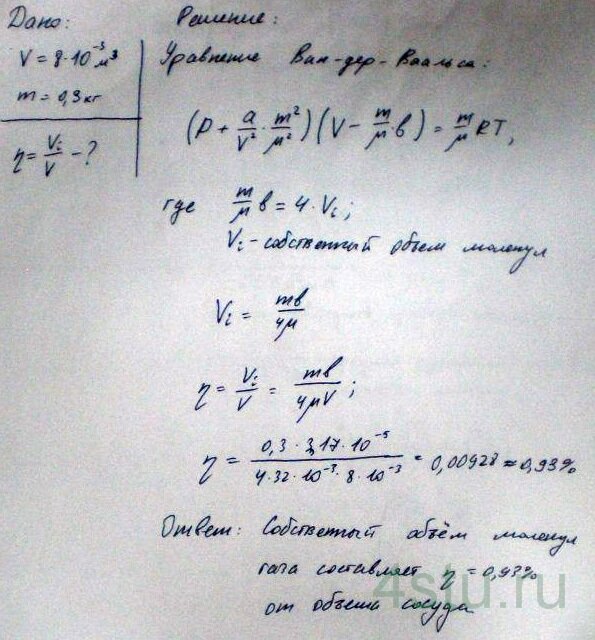 Дано:
V = 8·10⁻³ м³
m = 0,3 кг
η = Vᵢ/V - ?
Решение:
Уравнение Ван-дер-Ваальса:
(P + a/V² · m²/μ²)(V - m/μ · в) = m/μ RT,
где m/μ в = 4·Vᵢ;
Vᵢ - собственный объем молекул
Vᵢ = mв/4μ
η = Vᵢ/V = mв/4μV;
η = 0,3 · 3,17 · 10⁻⁵ / 4·32·10⁻³·8·10⁻³ = 0,00928 ≈ 0,93%
Ответ: Собственный объём молекул
газа составляет η = 0,93%
от объема сосуда
4stu.ru